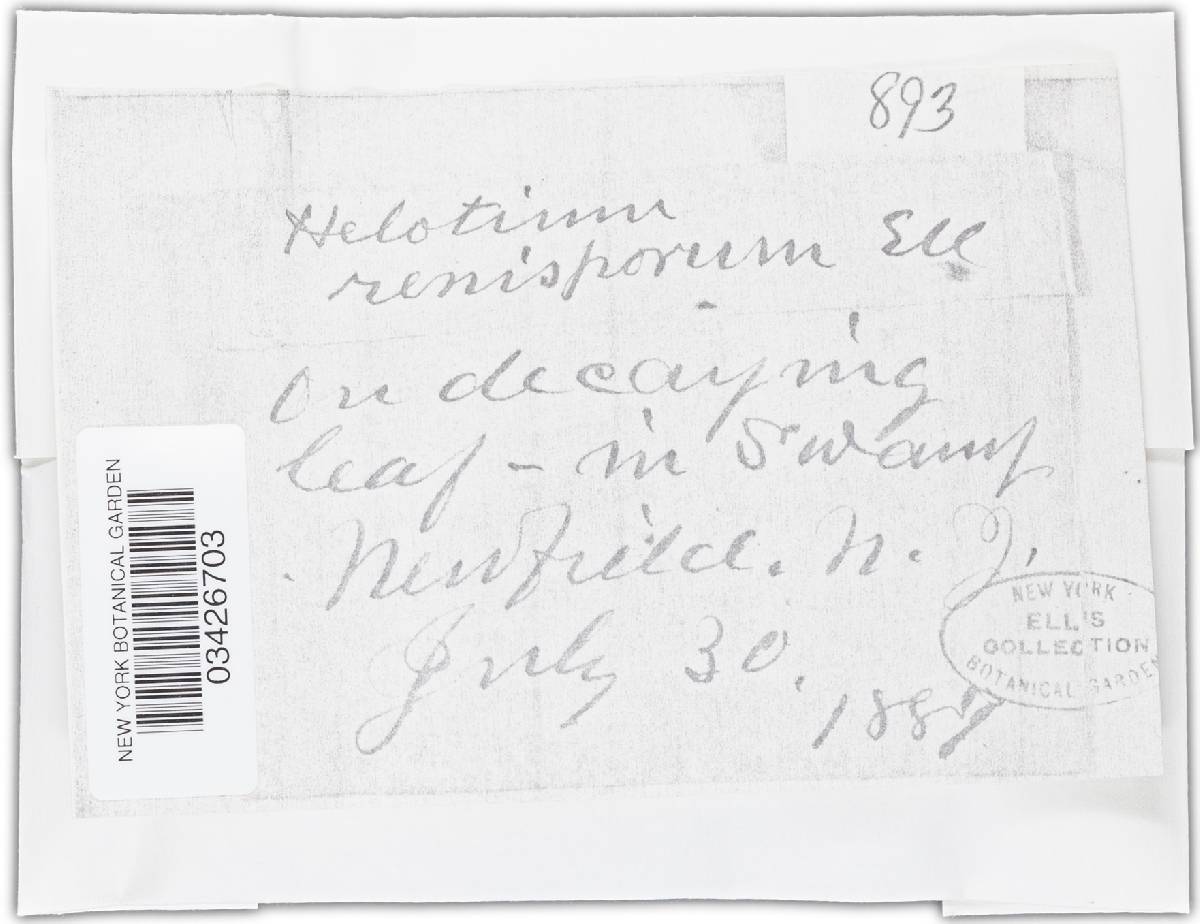 893
Helotium
renisporum Ell
On decaying
leaf - in Swamp
Newfield. N. J.
July 30.
NEW YORK
ELLIS
COLLECTION
BOTANICAL GARDEN
NEW YORK BOTANICAL GARDEN
03426703